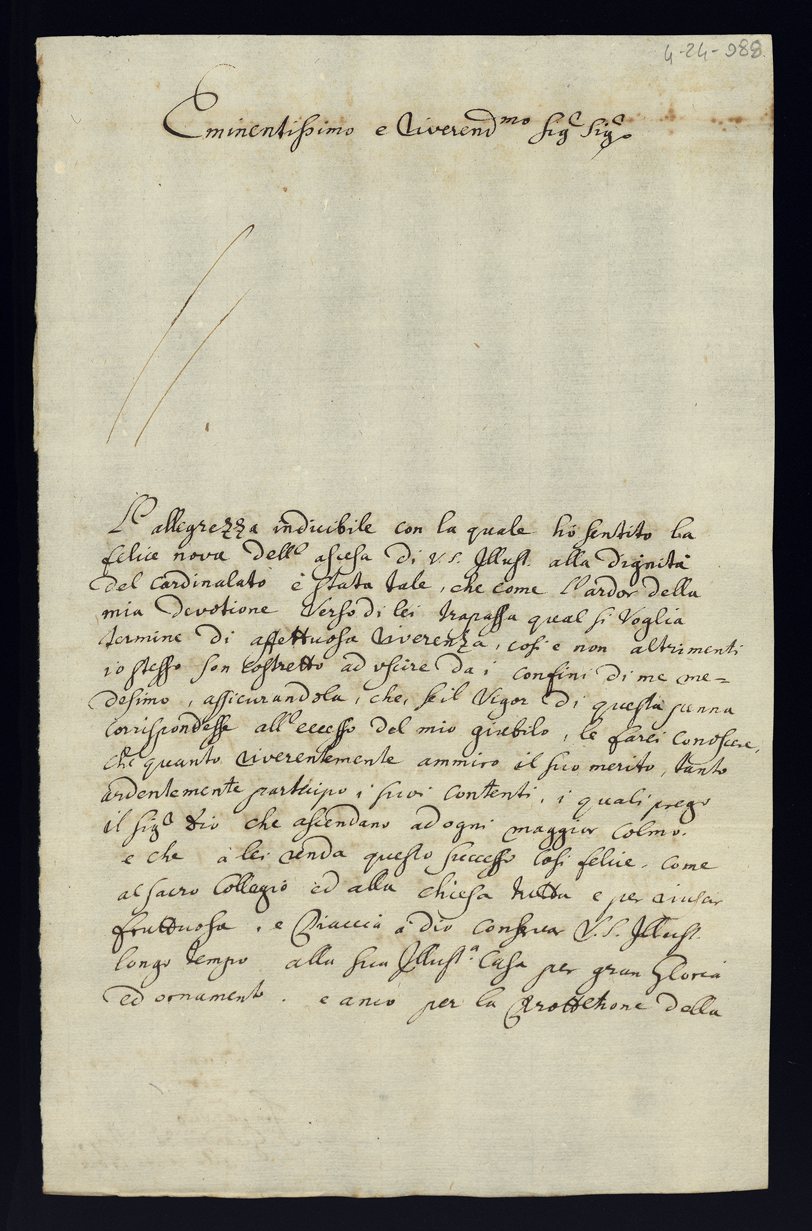 4-24-988.
Eminentissimo e Riverend.mo Sig.r Sig.r
L'allegrezza indicibile con la quale hò sentito la
felice nova dell' ascesa di V.S. Illust. alla dignità
del Cardinalato è stata tale, che come l'ardor della
mia devotione verso di lei trapassa qual si voglia
termine di affettuosa riverenza, così e non altrimenti
io stesso son costretto ad uscire da i confini di me me=
desimo, assicurandola, che, se il vigor di questa penna
corrispondesse all' eccesso del mio giubilo, le farei conoscere,
che quanto riverentemente ammiro il suo merito, tanto
ardentemente partecipo i suoi contenti, i quali prego
il Sig.r Dio che ascendano ad ogni maggior colmo.
e che à lei renda questo successo così felice. come
al sacro Collegio ed alla chiesa tutta e per riuscir
fruttuosa. e Piaccia à dio conservar V.S. Illust.
longo tempo alla sua Illust.a Casa per gran gloria
ed ornamento. e anco per la Prottetione della